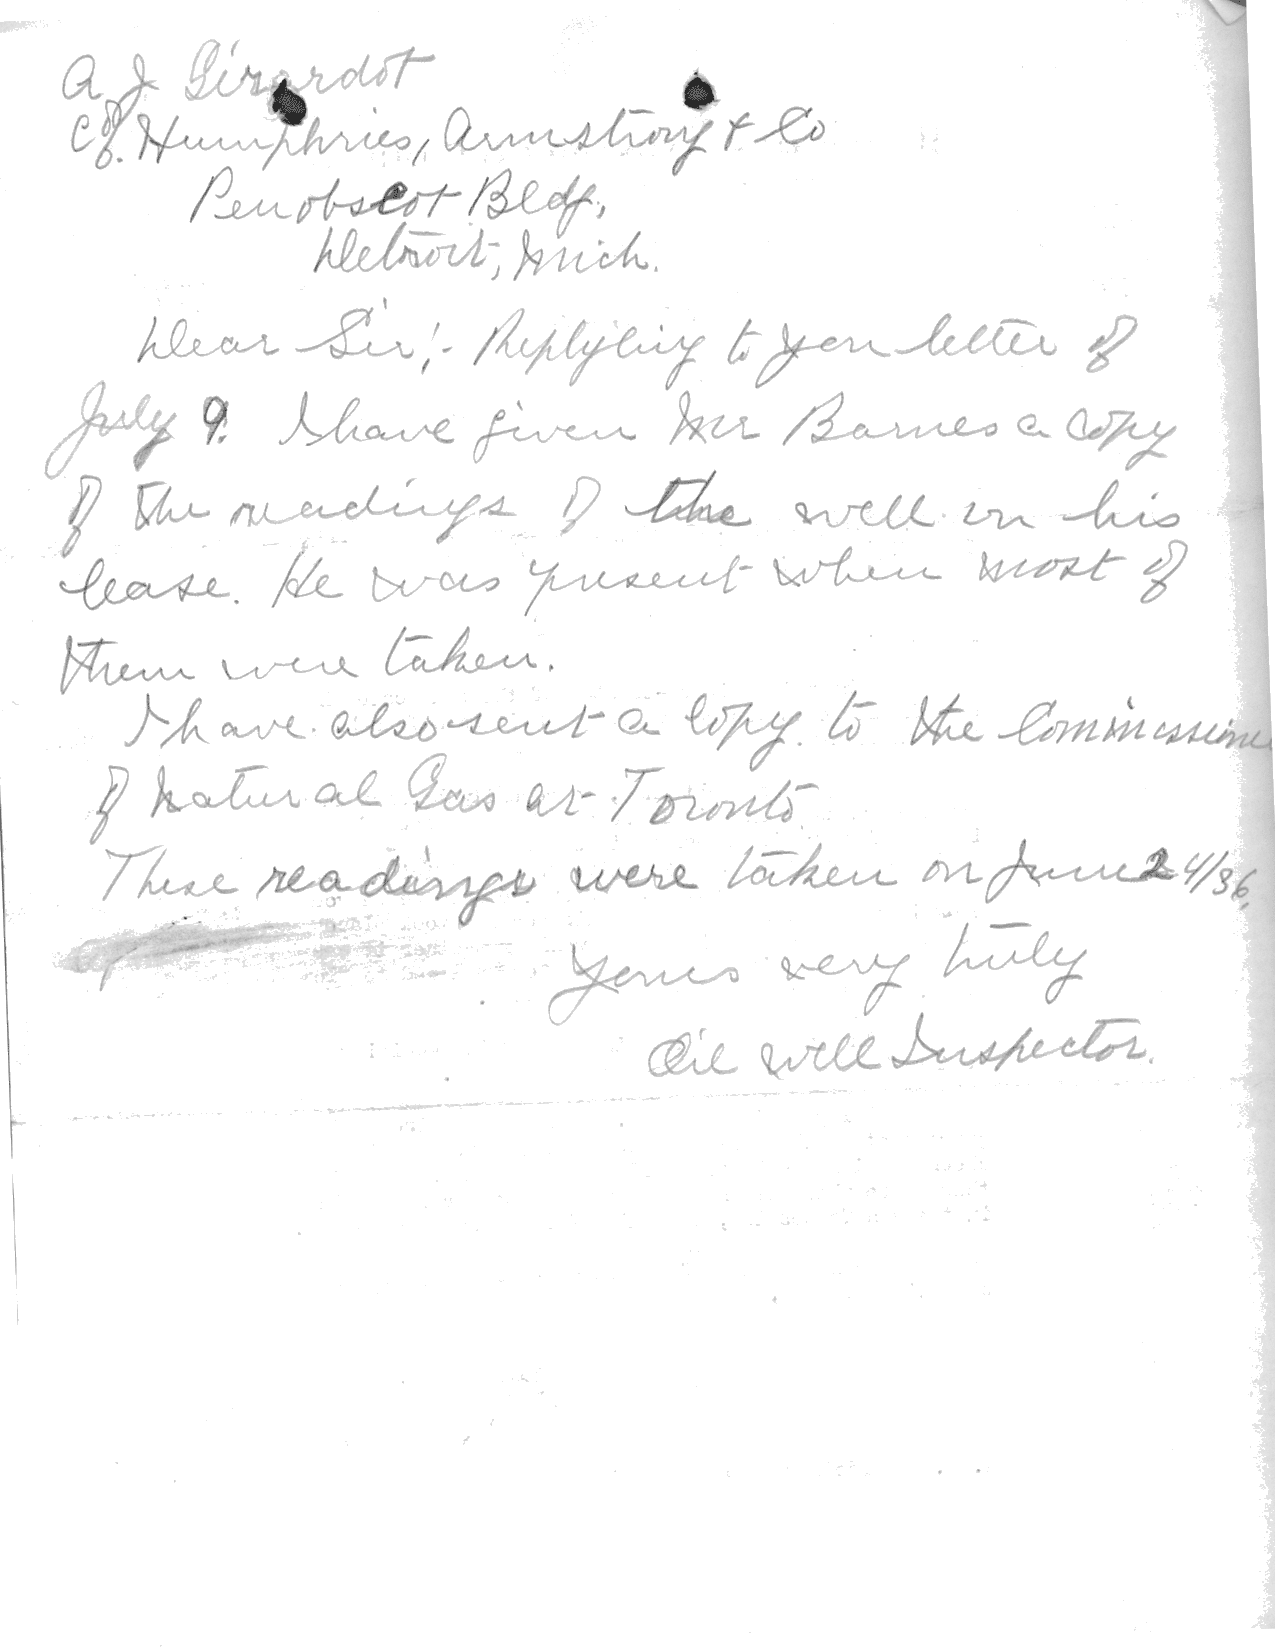 A J Girardot
c/o. Humphries, Armstrong & Co
Penobscot Bldg,
Detroit, Mich.
Dear Sir:- Replying to you letter of
July 9. I have given Mr Barnes a copy
of the readings of the well on his
lease. He was present when most of
them were taken.
I have also sent a copy to the Commissioner
of Natural Gas at Toronto
These readings were taken on June 24/36.
Yours very truly
Oil Well Inspector.